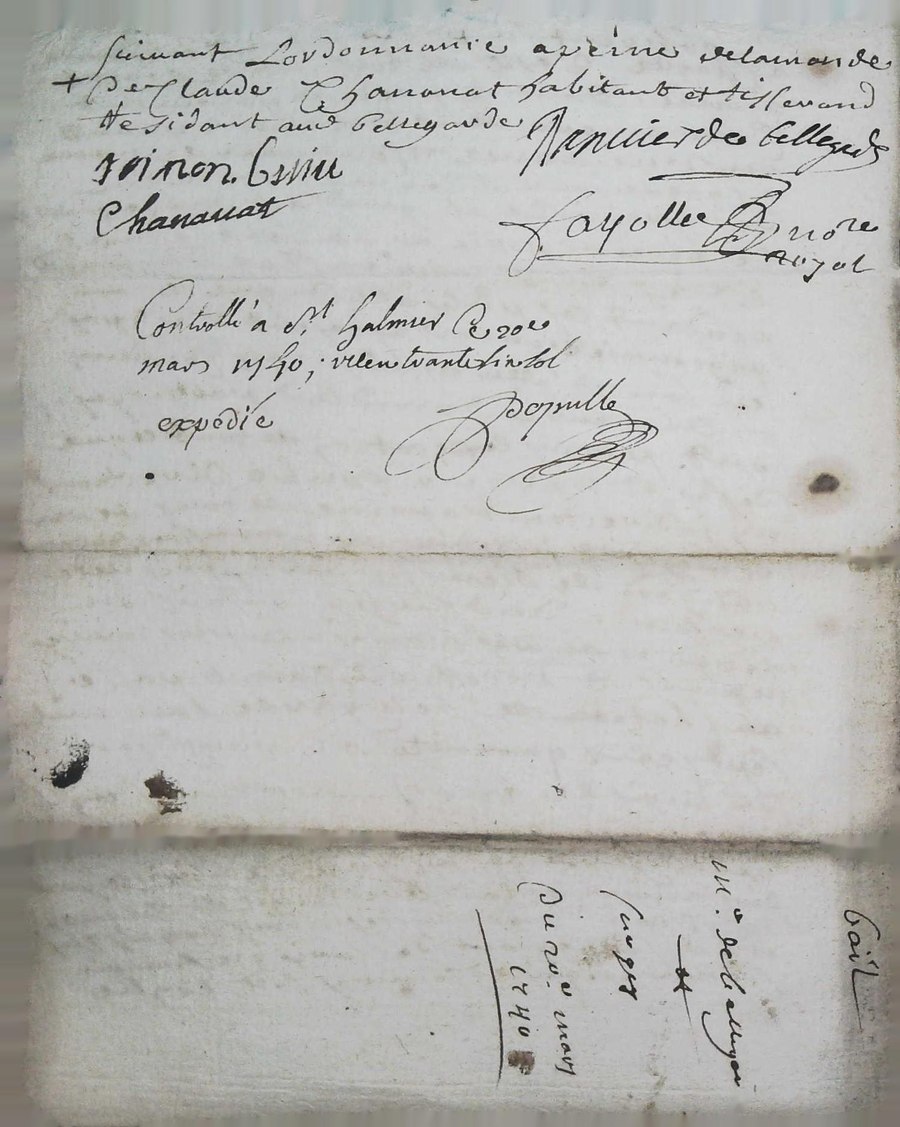 suivant Lordonnance a peine delamande
+ De Claude Chananat habitant et tisserand
Residant aud bellegarde
Simon
Janvier de bellegarde
Chananat
Fayolle nore
royal
Controllé a St Galmier Le 20e
mars 1740; trante sol
expedié
Bail
Mr. de bellegar
et
Du 20e mars
1740